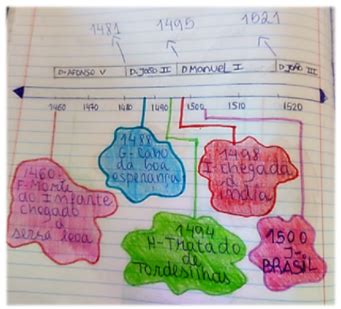 1481
1495
1521
D. AFONSO V
D. JOÃO II
D. MANUEL I
D. JOÃO III
1460
1470
1480
1490
1500
1510
1520
1460-
F-Morte
do Infante
chegado
à
serra leoa
1488
G-Cabo
da boa
esperança
1494
H-Tratado
de
Tordesilhas
1498
I-chegada
à
India
1500
J-
BRASIL